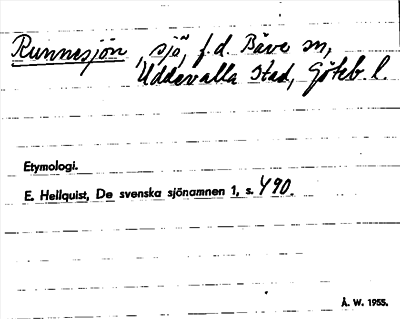 Runnesjön, sjö, f.d. Bäve sn,
Uddevalla stad, Göteb. l.
Etymologi.
E. Hellquist, De svenska sjönamnen 1, s. 490.
Å. W. 1955.